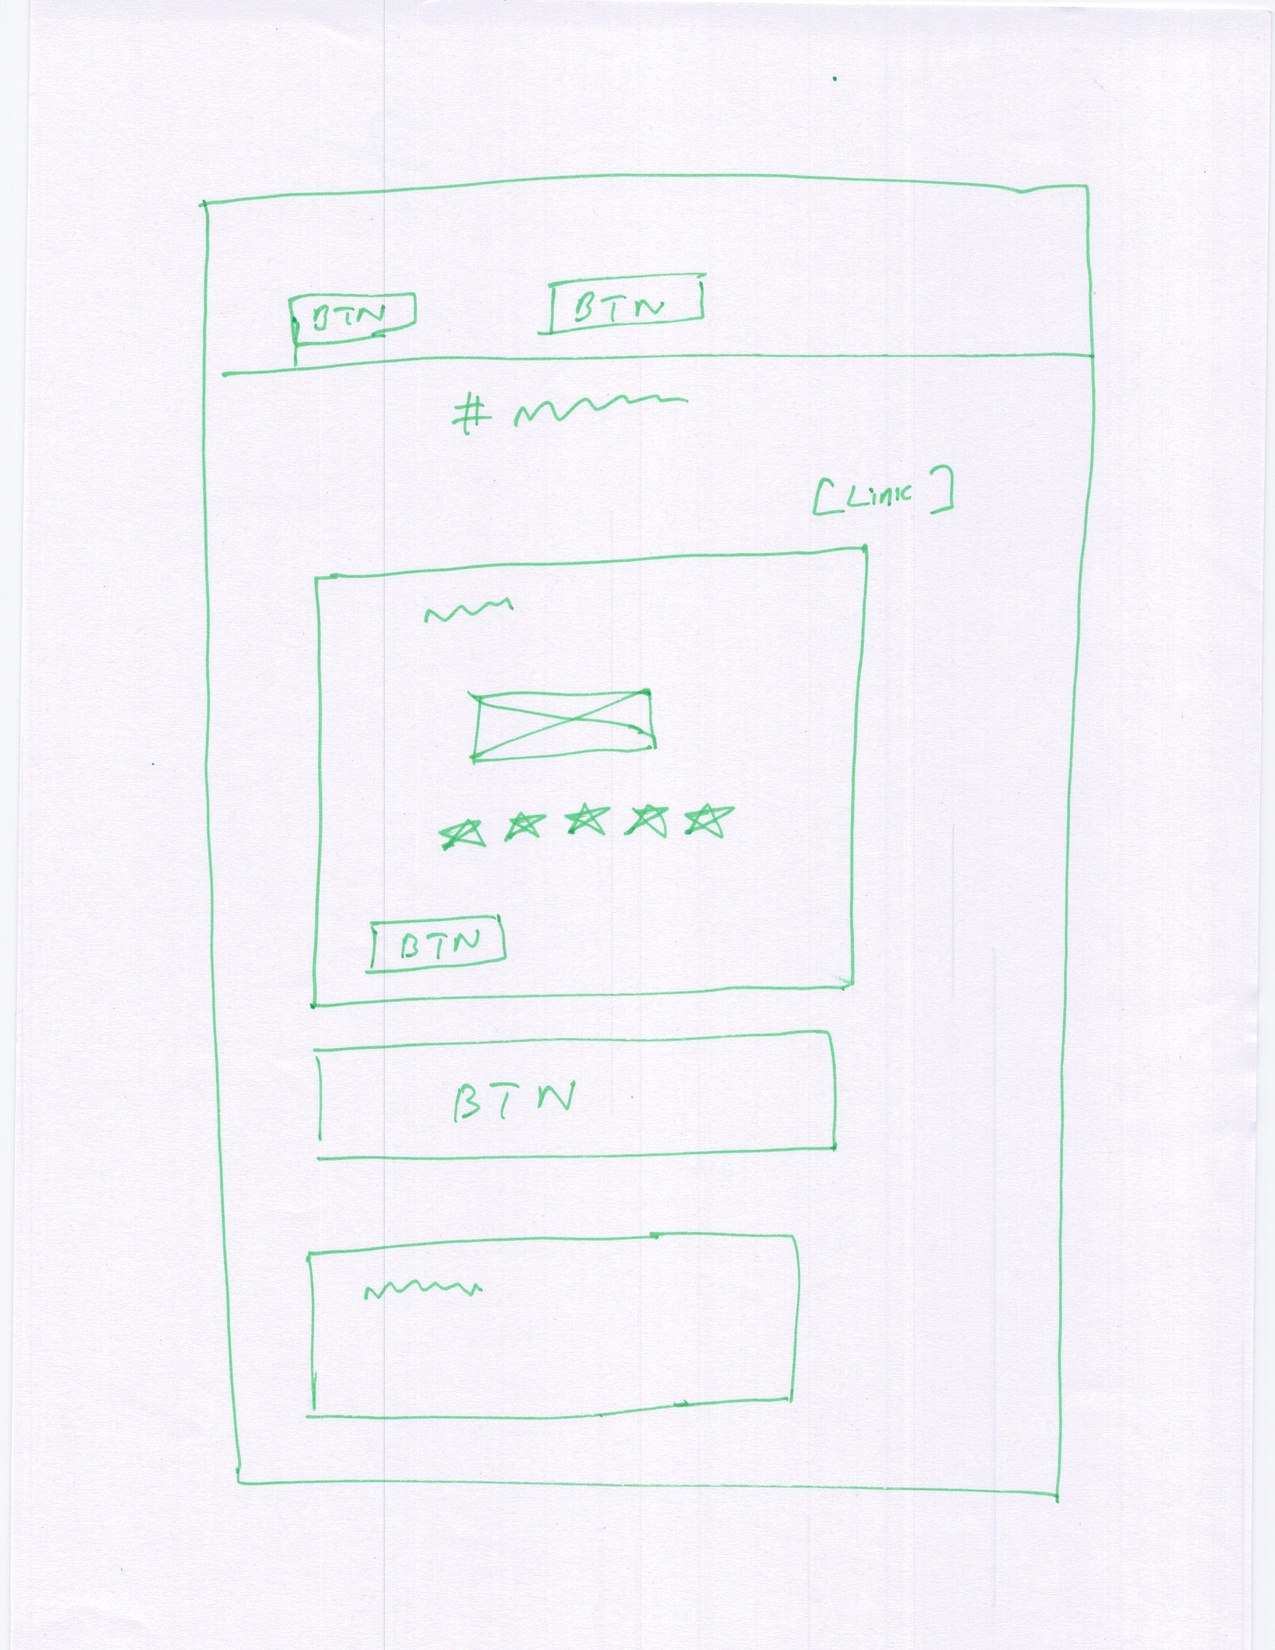 BTN BTN
#
[Link]
BTN
BTN